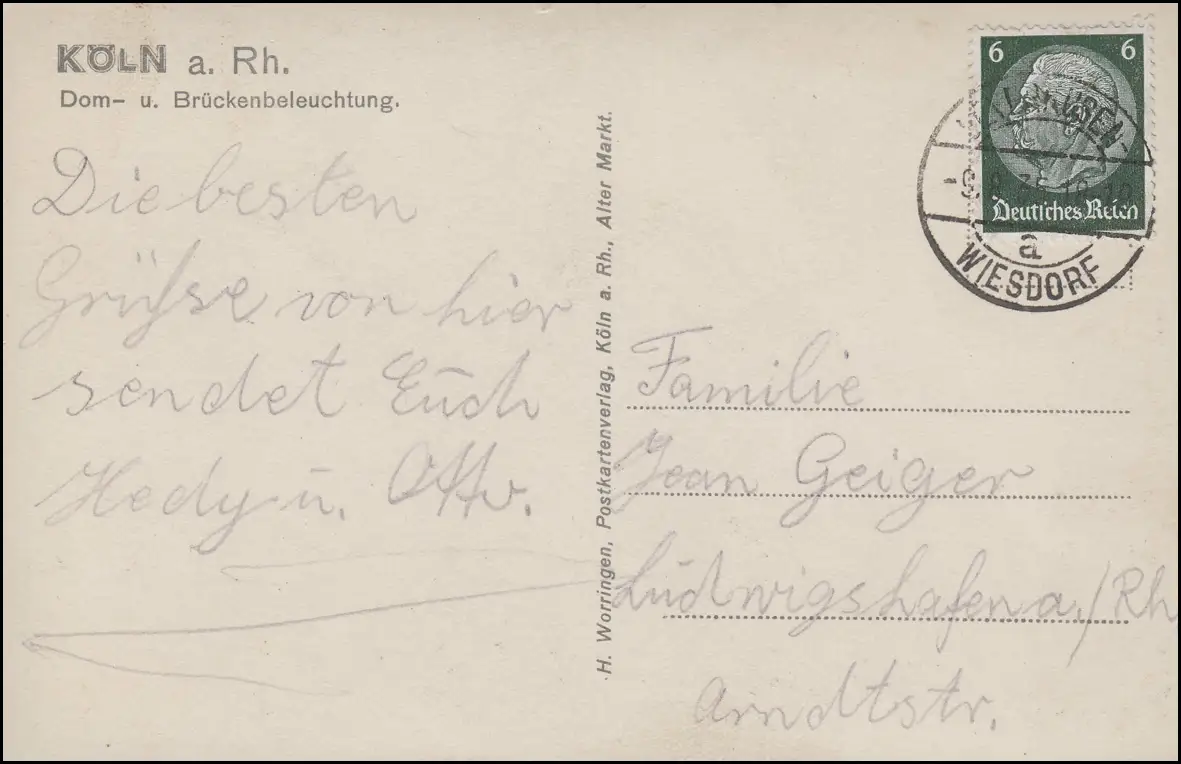 KÖLN a. Rh.
Dom- u. Brückenbeleuchtung.
Die besten
Grüße von hier
sendet Euch
Hedy u. Otto.
H. Worringen, Postkartenverlag, Köln a. Rh., Alter Markt.
6 6
Deutsches Reich
a
WIESDORF
Familie
Jean Geiger
Ludwigshafen a./Rh
Arndtstr.